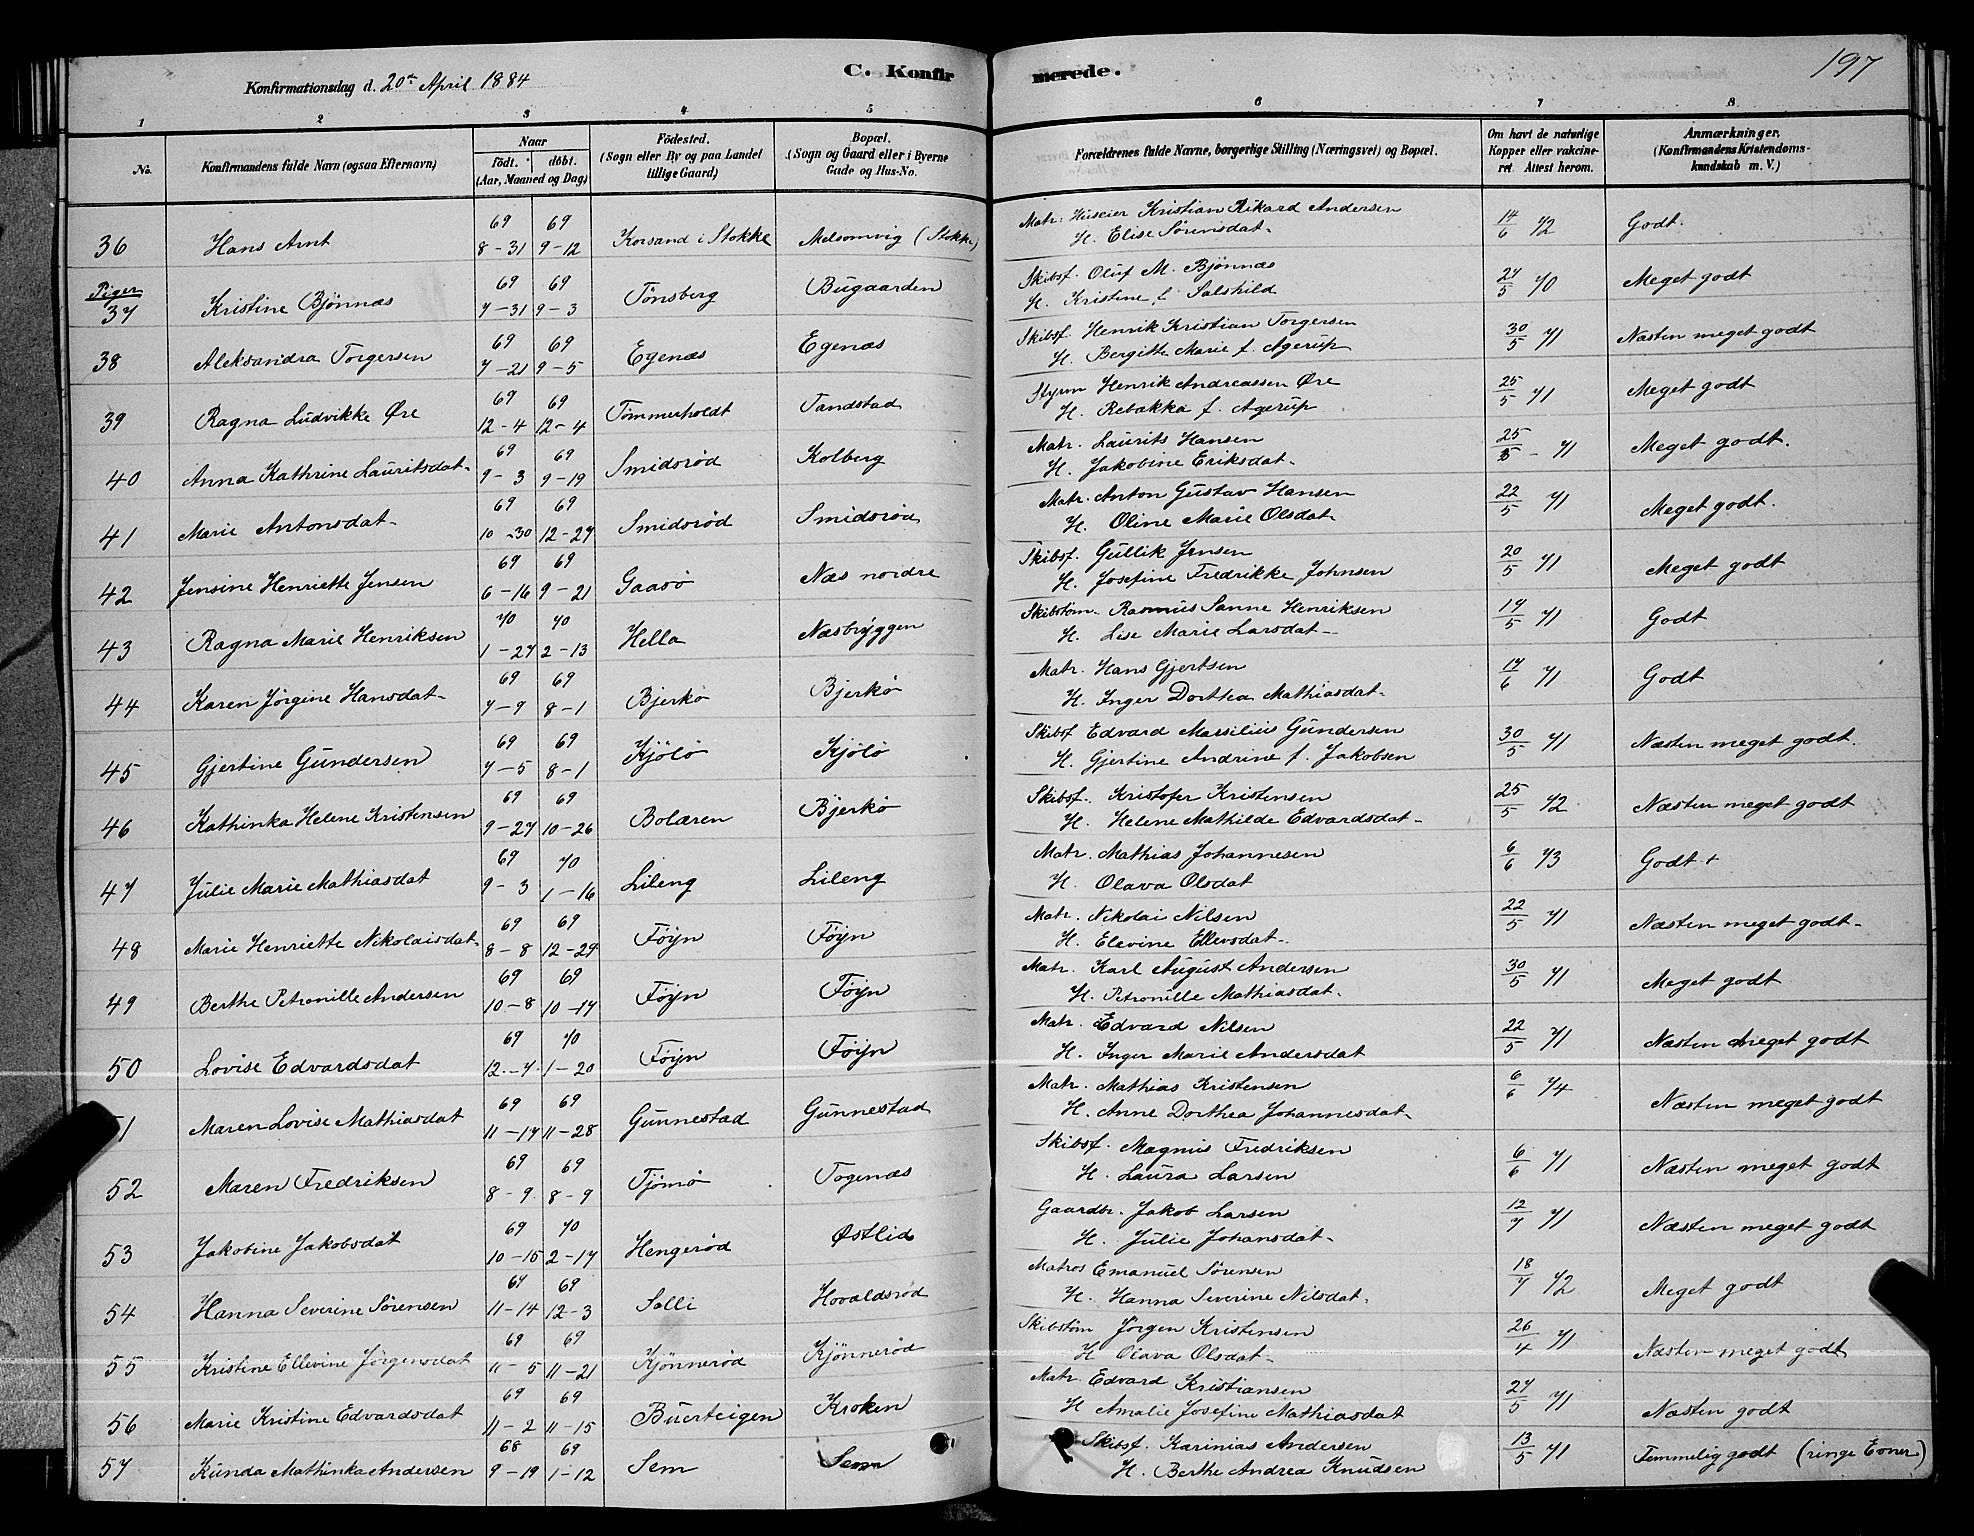 Konfirmationsdag d. 20de April 1884
C. Konfir
merede.
197
1 2 3 4 5 6 7 8
No.
Konfirmandens fulde Navn (ogsaa Efternavn)
Naar
födt. döbt.
(Aar, Maaned og Dag)
Födested.
(Sogn eller By og paa Landet tillige Gaard)
Bopæl.
(Sogn og Gaard eller i Byerne Gade og Hus-No.
Forældrenes fulde Navne, borgerlige Stilling (Næringsvei) og Bopæl.
Om havt de naturlige Kopper eller vakcineret. Attest herom.
Anmærkninger.
(Konfirmandens Kristendomskundskab m. V.)
69 69 Matr. Huseier Kristian Rikard Andersen
36 Hans Arnt 8-31 9-12 Korsand i Stokke Melsomvig (Stokke) H. Elise Sörensdat. 14/6 72 Godt.
Piger 69 69 Skibsf. Oluf M. Bjönnæs
37 Kristine Bjönnæs 7-31 9-3 Tönsberg Bugaarden H. Kristine f. Salshild 24/5 70 Meget godt
69 69 Skibsf. Henrik Kristian Torgersen
38 Aleksandra Torgersen 7-21 9-5 Egenæs Egenæs H. Bergitte Marie f. Agerup 30/5 71 Næsten meget godt
69 69 Styrm Henrik Andreassen Øre
39 Ragna Ludvikke Øre 12-4 12-4 Tömmerholdt Tandstad H. Rebekka f. Agerup 25/5 71 Meget godt
69 69 Matr. Laurits Hansen
40 Anna Kathrine Lauritsdat. 9-3 9-19 Smidsröd Kolberg H. Jakobine Eriksdat. 25/5 - 71 Meget godt.
69 69 Matr. Anton Gustav Hansen
41 Marie Antonsdat. 10-30 12-27 Smidsröd Smidsröd H. Oline Marie Olsdat. 22/5 71 Meget godt.
69 69 Skibsf. Gullik Jensen
42 Jensine Henriette Jensen 6-16 9-21 Gaasö Næs nordre H. Josefine Fredrikke Johnsen 20/5 71 Meget godt
70 70 Skibstöm. Rasmus Sanne Henriksen
43 Ragna Marie Henriksen 1-27 2-13 Hella Næsbryggen H. Lise Marie Larsdat. 19/5 71 Godt
69 69 Matr. Hans Gjertsen
44 Karen Jörgine Hansdat. 7-9 8-1 Bjerkö Bjerkö H. Inger Dorthea Mathiasdat. 17/6 71 Godt
69 69 Skibsf Edvard Marsilius Gundersen
45 Gjertine Gundersen 7-5 8-1 Kjölö Kjölö H. Gjertine Andrine f. Jakobsen 30/5 71 Næsten meget godt.
69 69 Skibsf. Kristofer Kristensen
46 Kathinka Helene Kristensen 9-27 10-26 Bolæren Bjerkö H. Helene Mathilde Edvardsdat. 25/5 72 Næsten meget godt
69 70 Matr. Mathias Johannesen
47 Julie Marie Mathiasdat 9-3 1-16 Lileng Lileng H. Olava Olsdat 6/6 73 Godt +
69 69 Matr. Nikolai Nilsen
48 Marie Henriette Nikolaisdat. 8-8 12-29 Föyn Föyn H. Elevine Ellevsdat. 22/5 71 Næsten meget godt.
69 69 Matr. Karl August Andersen
49 Berthe Petronille Andersen 10-8 10-17 Föyn Föyn H. Petronille Mathiasdat. 30/5 71 Meget godt
69 70 Matr. Edvard Nilsen
50 Lovise Edvardsdat 12-7 1-20 Föyn Föyn H. Inger Marie Andersdat 22/5 71 Næsten meget godt
69 69 Matr. Mathias Kristensen
1 Maren Lovise Mathiasdat 11-17 11-28 Gunnestad Gunnestad H. Anne Dorthea Johannesdat. 6/6 74 Næsten meget godt
69 69 Skibsf. Magnus Fredriksen
52 Maren Fredriksen 8-9 8-9 Tjömö Togenæs H. Laura Larsen 6/6 71 Næsten meget godt
69 70 Gaardbr. Jakob Larsen
53 Jakobine Jakobsdat 10-15 2-17 Hengeröd Østlid H. Julie Johansdat. 12/7 71 Næsten meget godt
69 69 Matros Emanuel Sörensen
54 Hanna Severine Sörensen 11-14 12-3 Solli Hovaldsröd H. Hanna Severine Nilsdat. 18/7 72 Meget godt
69 69 Skibstöm Jörgen Kristensen
55 Kristine Ellevine Jörgensdat 11-5 11-21 Kjönneröd Kjönneröd H Olava Olsdat. 26/4 71 Næsten meget godt
69 69 Matr. Edvard Kristiansen
56 Marie Kristine Edvardsdat 11-2 11-15 Buerteigen Kroken H Amalie Josefine Mathiasdat 27/5 71 Næsten godt
68 69 Skibsf. Karinias Andersen
57 Kunda Mathinka Andersen 9-19 1-12 Sem Sem H. Berthe Andrea Knudsen 13/5 71 Temmelig godt (ringe Evner)